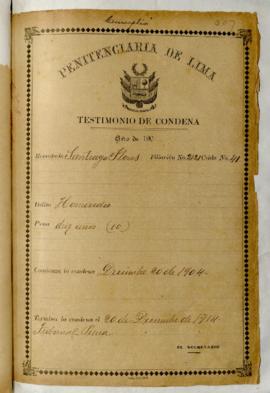 Cumplió
PENITENCIARIA DE LIMA
TESTIMONIO DE CONDENA
Año de 190
Rematado Santiago Flores Filiación No. 2121 Celda No. 41
Delito Homicidio
Pena diez años (10)
Comienza la condena Diciembre 20 de 1904
Termina la condena el 20 de Diciembre de 1914
Tribunal
EL SECRETARIO